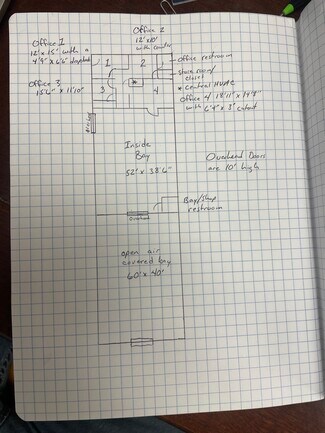 Office 1
12' x 15' with a
4'9" x 6'6"
Office 2
12' x 10'
with counter
Office 3
15'6" x 11'10"
1
2
3
*
4
Office restroom
Store room/
closet
* central HVAC
Office 4 18'11" x 14'7"
with 6'4" x 3' cutout
Overhead
Inside
Bay
52' x 38'6"
Overhead Doors
are 10' high
Overhead
Bay/Shop
restroom
open air
covered bay
60' x 40'